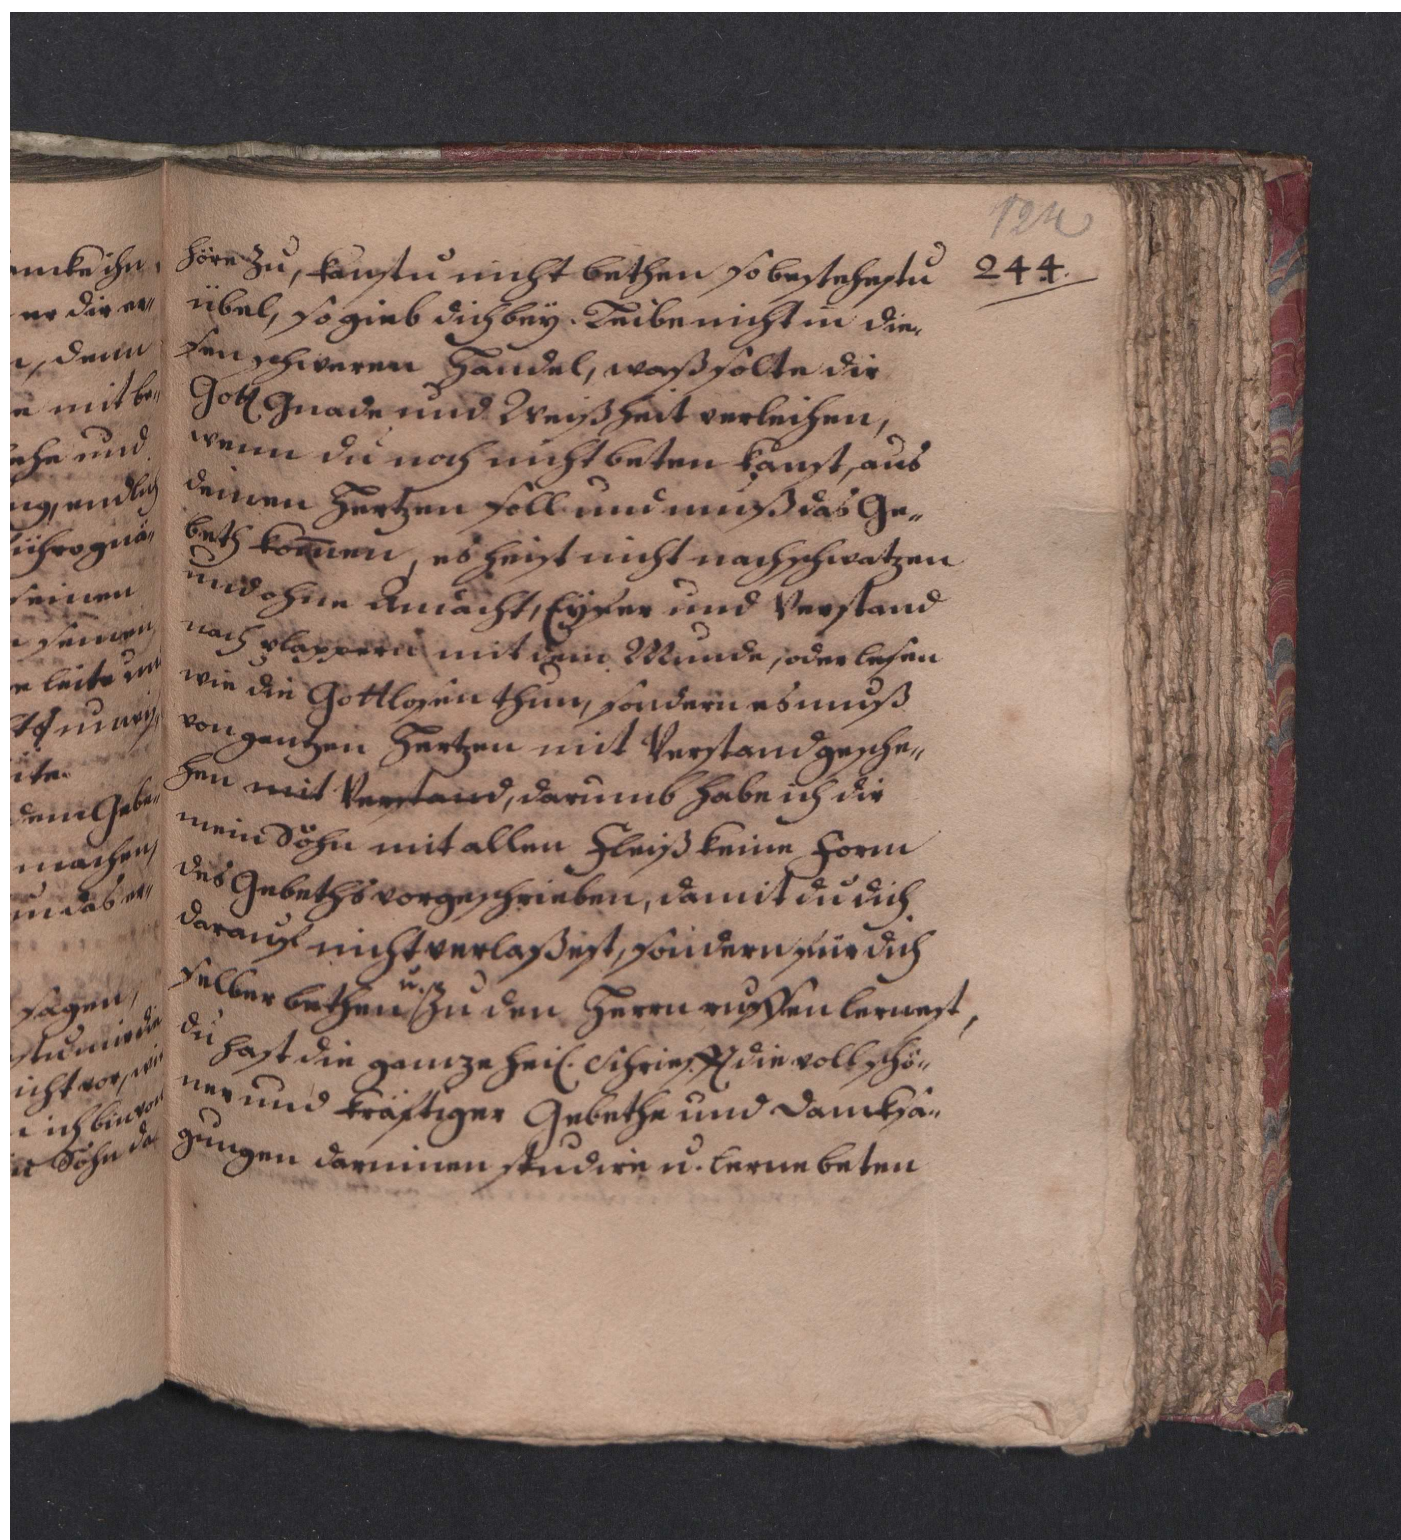 124
244.
höre zu, kanstu nicht bethen so bestehestu
übel, so gieb dich bey Leibe nicht in die-
sen schweren Handel, waß solte dir
Gott Gnade und Weißheit verleihen,
wenn du noch nicht beten kanst, aus
deinen Hertzen soll und muß das Ge-
beth kom̅en, es heist nicht nachschwatzen
und ohne Andacht, Eyfer und Verstand
nach plappern mit dem Munde, oder lesen
wie die Gottlosen thun, sondern es muß
von gantzen Hertzen mit Verstand gesche-
hen mit Verstand, darumb habe ich dir
mein Sohn mit allen Fleiß keine Form
des Gebeths vorgeschrieben, damit du dich
darauf nicht verlaßest, sondern für dich
selber bethen u. zu den Herrn ruffen lernest,
du hast die gantze heil. Schrifft die voll schö-
ner und kräftiger Gebethe und Dancksa-
gungen darinnen studire u. lerne beten
ancke ihn
er dir er-
denn
mit be-
und
endlich
seinen
leite
ite.
dem Gebe-
machen,
das er-
sagen,
nicht vor, wie
ich bin von
Sohn das